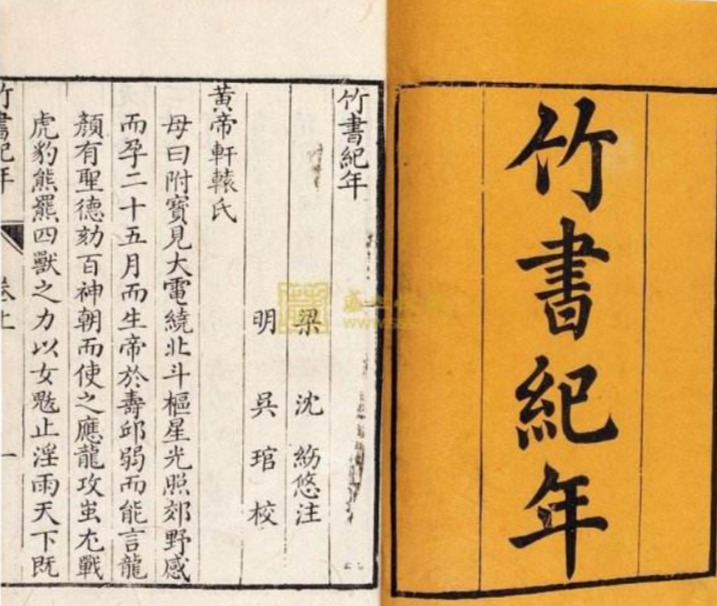 竹書紀年
竹書紀年
梁 沈 悠注
明 吳 琯 校
黃帝軒轅氏
母曰附寶見大電繞北斗樞星光照郊野感
而孕二十五月而生帝於壽邱弱而能言龍
顏有聖德劾百神朝而使之應龍攻蚩尤戰
虎豹熊羆四獸之力以女魃止淫雨天下既
竹書紀年 卷上 一